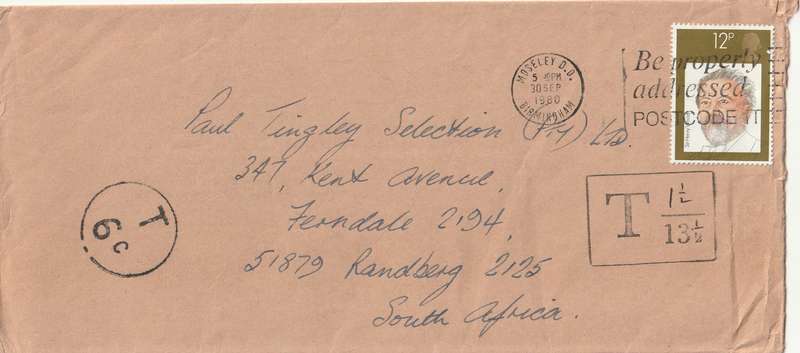 12P
MOSELEY D.O.
5 - PM
30 SEP
1980
BIRMINGHAM
Be properly
addressed
POSTCODE IT
Paul Tingley Selection (Pty) Ltd.
347, Kent Avenue,
Ferndale 2194,
51879 Randberg 2125
South Africa.
T
6c
T 1½
13½